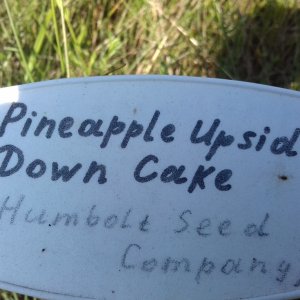 Pineapple Upsid
Down Cake
Humbolt Seed
Company